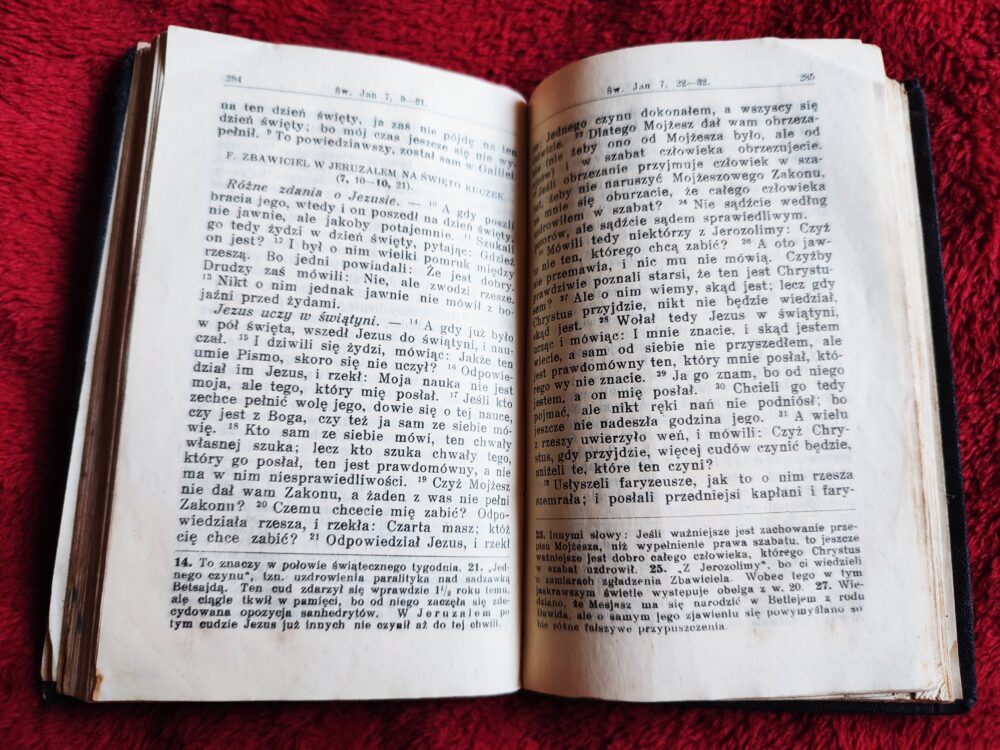 284
Św. Jan 7, 9—21.
na ten dzień święty, ja zaś nie pójdę na ten
dzień święty; bo mój czas jeszcze się nie wy-
pełnił. ⁹ To powiedziawszy, został sam w Galilei.
F. ZBAWICIEL W JERUZALEM NA ŚWIĘTO KUCZEK.
(7, 10—10, 21).
Różne zdania o Jezusie. — ¹⁰ A gdy poszli
bracia jego, wtedy i on poszedł na dzień święty,
nie jawnie, ale jakoby potajemnie. ¹¹ Szukali
go tedy żydzi w dzień święty, pytając: Gdzież
on jest? ¹² I był o nim wielki pomruk między
rzeszą. Bo jedni powiadali: Że jest dobry.
Drudzy zaś mówili: Nie, ale zwodzi rzesze.
¹³ Nikt o nim jednak jawnie nie mówił z bo-
jaźni przed żydami.
Jezus uczy w świątyni. — ¹⁴ A gdy już było
w pół święta, wszedł Jezus do świątyni, i nau-
czał. ¹⁵ I dziwili się żydzi, mówiąc: Jakże ten
umie Pismo, skoro się nie uczył? ¹⁶ Odpowie-
dział im Jezus, i rzekł: Moja nauka nie jest
moja, ale tego, który mię posłał. ¹⁷ Jeśli kto
zechce pełnić wolę jego, dowie się o tej nauce,
czy jest z Boga, czy też ja sam ze siebie mó-
wię. ¹⁸ Kto sam ze siebie mówi, ten chwały
własnej szuka; lecz kto szuka chwały tego,
który go posłał, ten jest prawdomówny, a nie
ma w nim niesprawiedliwości. ¹⁹ Czyż Mojżesz
nie dał wam Zakonu, a żaden z was nie pełni
Zakonu? ²⁰ Czemu chcecie mię zabić? Odpo-
wiedziała rzesza, i rzekła: Czarta masz; któż
cię chce zabić? ²¹ Odpowiedział Jezus, i rzekł
14. To znaczy w połowie świątecznego tygodnia. 21. „Jed-
nego czynu", tzn. uzdrowienia paralityka nad sadzawką
Betsajdą. Ten cud zdarzył się wprawdzie 1½ roku temu,
ale ciągle tkwił w pamięci, bo od niego zaczęła się zde-
cydowana opozycja sanhedrytów. W Jeruzalem po
tym cudzie Jezus już innych nie czynił aż do tej chwili.
285
Św. Jan 7, 22—32.
Jednego czynu dokonałem, a wszyscy się
²² Dlatego Mojżesz dał wam obrzeza-
(nie żeby ono od Mojżesza było, ale od
i w szabat człowieka obrzezujecie.
Jeśli obrzezanie przyjmuje człowiek w sza-
żeby nie naruszyć Mojżeszowego Zakonu,
na mnie się oburzacie, że całego człowieka
uzdrowiłem w szabat? ²⁴ Nie sądźcie według
pozorów, ale sądźcie sądem sprawiedliwym.
²⁵ Mówili tedy niektórzy z Jerozolimy: Czyż
to nie ten, którego chcą zabić? ²⁶ A oto jaw-
nie przemawia, i nic mu nie mówią. Czyżby
prawdziwie poznali starsi, że ten jest Chrystu-
sem? ²⁷ Ale o nim wiemy, skąd jest; lecz gdy
Chrystus przyjdzie, nikt nie będzie wiedział,
skąd jest. ²⁸ Wołał tedy Jezus w świątyni,
ucząc i mówiąc: I mnie znacie, i skąd jestem
wiecie, a sam od siebie nie przyszedłem, ale
jest prawdomówny ten, który mnie posłał, któ-
rego wy nie znacie. ²⁹ Ja go znam, bo od niego
jestem, a on mię posłał. ³⁰ Chcieli go tedy
pojmać, ale nikt ręki nań nie podniósł; bo
jeszcze nie nadeszła godzina jego. ³¹ A wielu
z rzeszy uwierzyło weń, i mówili: Czyż Chry-
stus, gdy przyjdzie, więcej cudów czynić będzie,
aniżeli te, które ten czyni?
³² Usłyszeli faryzeusze, jak to o nim rzesza
szemrała; i posłali przedniejsi kapłani i fary-
23. Innymi słowy: Jeśli ważniejsze jest zachowanie prze-
pisu Mojżesza, niż wypełnienie prawa szabatu, to jeszcze
ważniejsze jest dobro całego człowieka, którego Chrystus
w szabat uzdrowił. 25. „Z Jerozolimy", bo ci wiedzieli
o zamiarach zgładzenia Zbawiciela. Wobec tego w tym
jaskrawszym świetle występuje obelga z w. 20. 27. Wie-
dziano, że Mesjasz ma się narodzić w Betlejem z rodu
Dawida, ale o samym jego zjawieniu się powymyślano so-
bie różne fałszywe przypuszczenia.